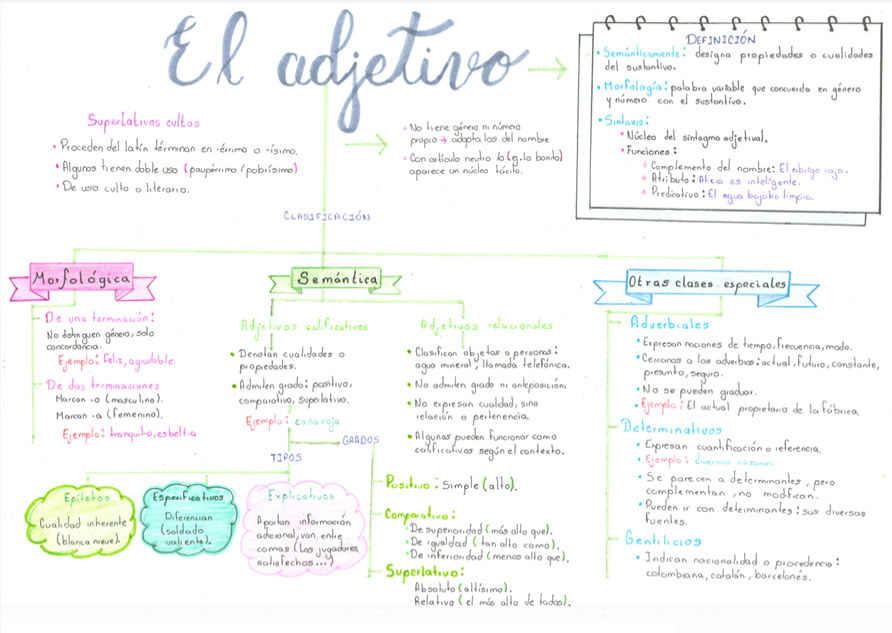 El adjetivo
DEFINICIÓN
• Semánticamente: designa propiedades o cualidades
del sustantivo.
• Morfología: palabra variable que concuerda en género
y número con el sustantivo.
• Sintaxis:
• Núcleo del sintagma adjetival.
• Funciones:
→ Complemento del nombre: El abrigo rojo.
→ Atributo: Alicia es inteligente.
→ Predicativo: El agua bajaba limpia.
Superlativos cultos
• Proceden del latín terminan en -érrimo o -ísimo.
• Algunos tienen doble uso (paupérrimo / pobrísimo)
• De uso culto o literario.
• No tiene género ni número
propio → adopta los del nombre
• Con artículo neutro lo (g. lo bonito)
aparece un núcleo tácito.
CLASIFICACIÓN
Morfológica
De una terminación:
No distinguen género, solo
concordancia.
Ejemplo: Feliz, agradable.
De dos terminaciones
Marcan -o (masculino).
Marcan -a (femenino).
Ejemplo: tranquil-o, esbelt-a
Semántica
Adjetivos calificativos
• Denotan cualidades o
propiedades.
• Admiten grado: positivo,
comparativo, superlativo.
Ejemplo: casa roja
GRADOS
TIPOS
Epítetos
Cualidad inherente
(blanca nieve).
Especificativos
Diferencian
(soldado
valiente).
Explicativos
Aportan información
adicional, van entre
comas (Los jugadores,
satisfechos...)
Adjetivos relacionales
• Clasifican objetos o personas:
agua mineral, llamada telefónica.
• No admiten grado ni anteposición.
• No expresan cualidad, sino
relación o pertenencia.
• Algunas pueden funcionar como
calificativos según el contexto.
Positivo: Simple (alto).
Comparativo:
• De superioridad (más alto que).
• De igualdad (tan alto como).
• De inferioridad (menos alto que).
Superlativo:
Absoluto (altísimo).
Relativo (el más alto de todos).
Otras clases especiales
Adverbiales
• Expresan nociones de tiempo, frecuencia, modo.
• Cercanos a los adverbios: actual, futuro, constante,
presunto, seguro.
• No se pueden graduar.
• Ejemplo: El actual propietario de la fábrica.
Determinativos
• Expresan cuantificación o referencia.
• Ejemplo: diversas razones
• Se parecen a determinantes, pero
complementan, no modifican.
• Pueden ir con determinantes: sus diversas
fuentes.
Gentilicios
• Indican nacionalidad o procedencia:
colombiana, catalán, barcelonés.